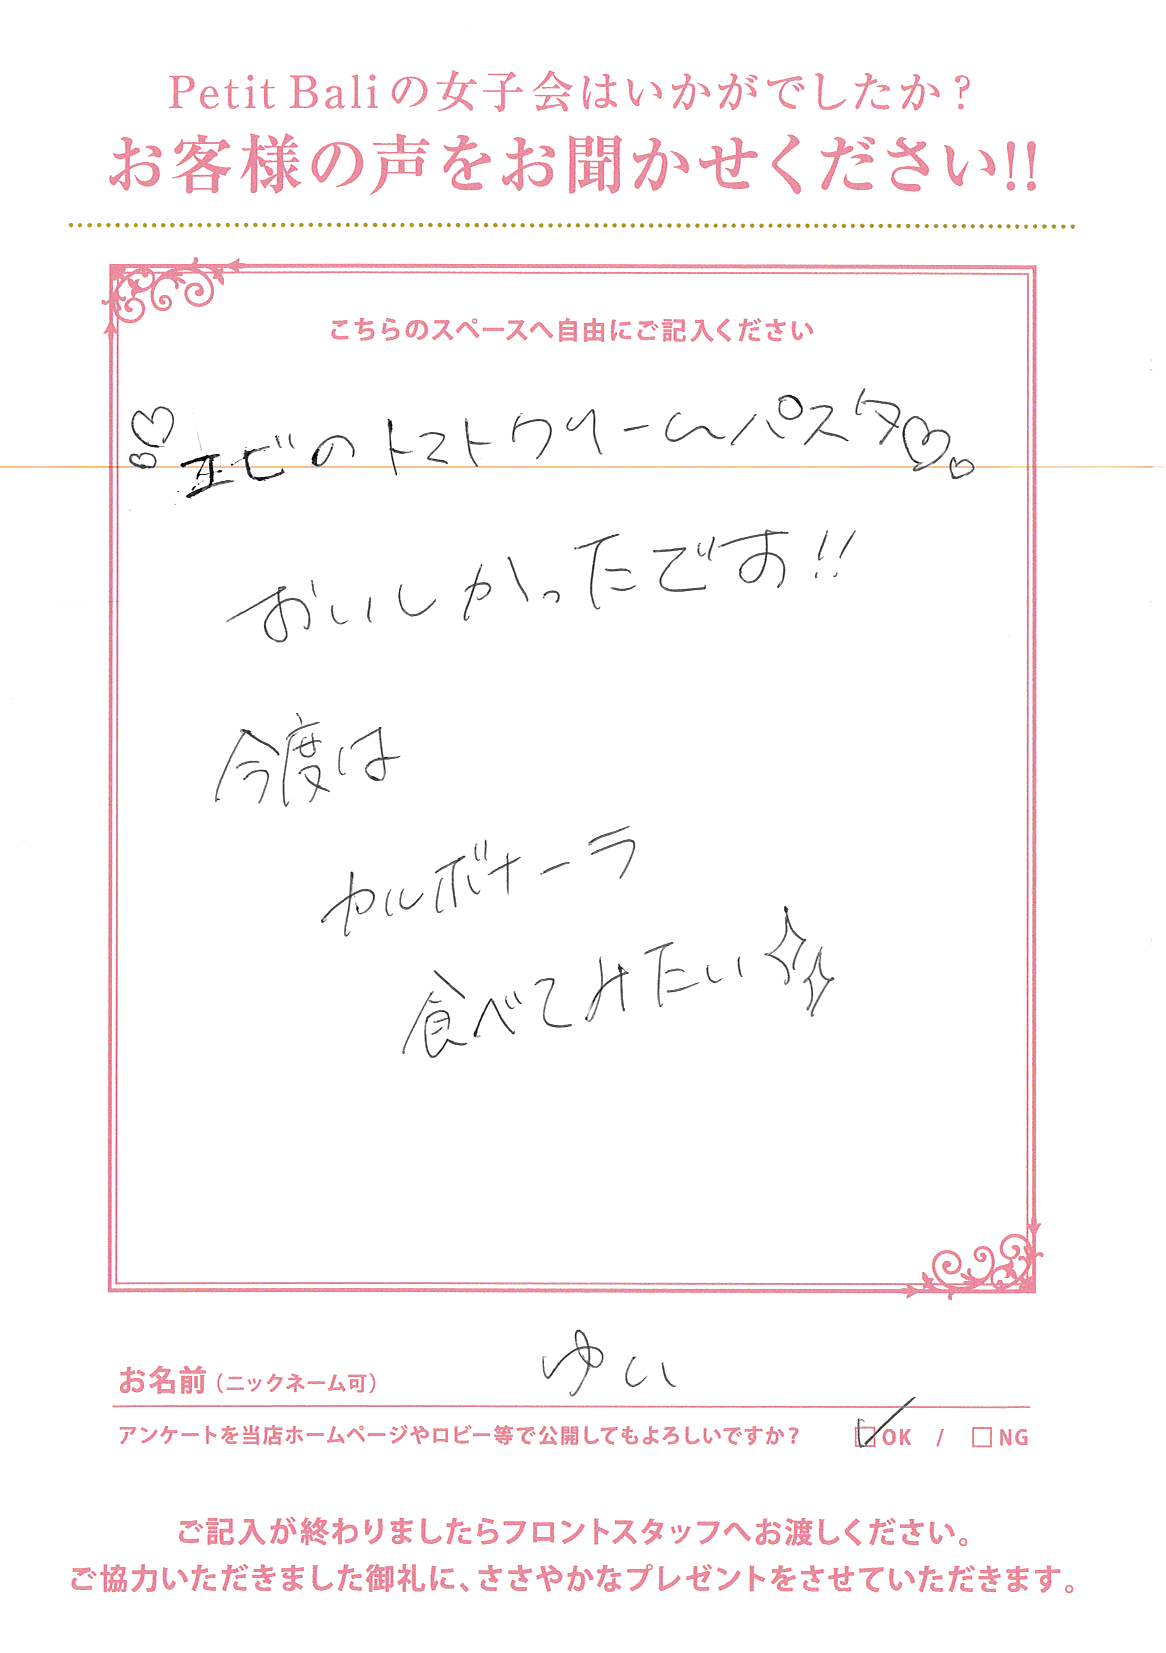 Petit Baliの女子会はいかがでしたか？
お客様の声をお聞かせください!!
こちらのスペースへ自由にご記入ください
♡♡エビのトマトクリームパスタ♡♡
おいしかったです!!
今度は
カルボナーラ
食べてみたい✧✧
ゆい
お名前（ニックネーム可）
アンケートを当店ホームページやロビー等で公開してもよろしいですか？ ☑OK / □NG
ご記入が終わりましたらフロントスタッフへお渡しください。
ご協力いただきました御礼に、ささやかなプレゼントをさせていただきます。